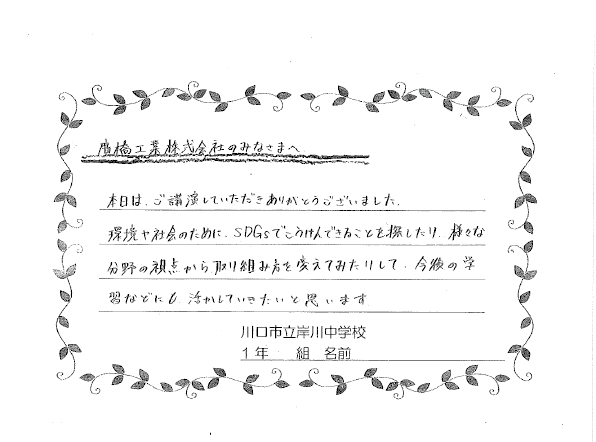 鷹橋工業株式会社のみなさまへ
本日は、ご講演していただきありがとうございました。
環境や社会のために、SDGsでこうけんできることを探したり、様々な
分野の視点から取り組み方を変えてみたりして、今後の学
習などにも活かしていきたいと思います
川口市立岸川中学校
1年 組 名前